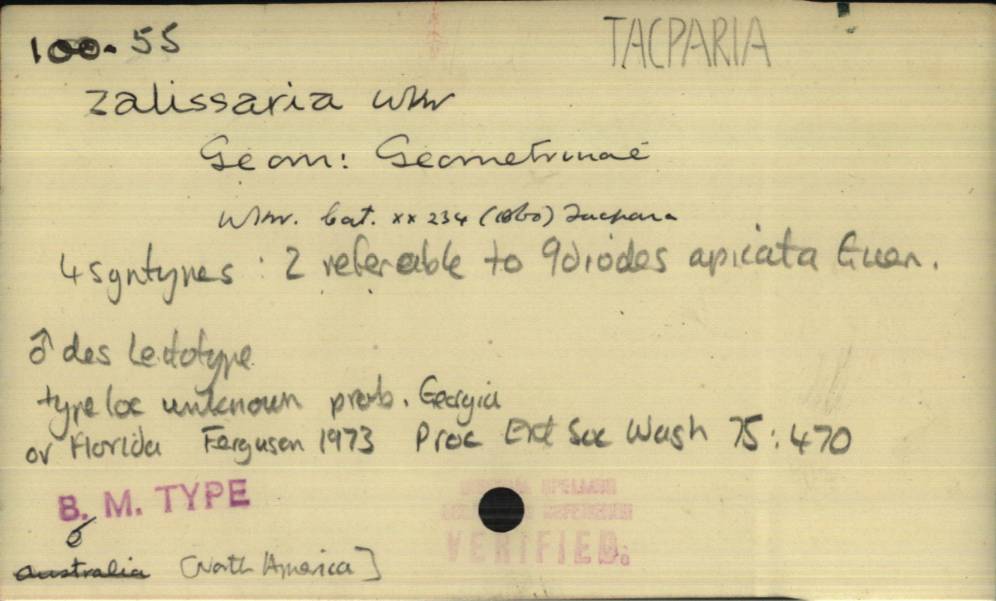 100.55
TACPARIA
zalissaria Wkr
Geom: Geometrinae
Wkr. Cat. xx 234 (1860) Tacparia
4 syntypes : 2 referable to 9diodes apicata Guen.
♂ des Lectotype
type loc unknown prob. Georgia
or Florida Ferguson 1973 Proc Ent Soc Wash 75:470
B. M. TYPE
♂
VERIFIED.
Australia [North America]